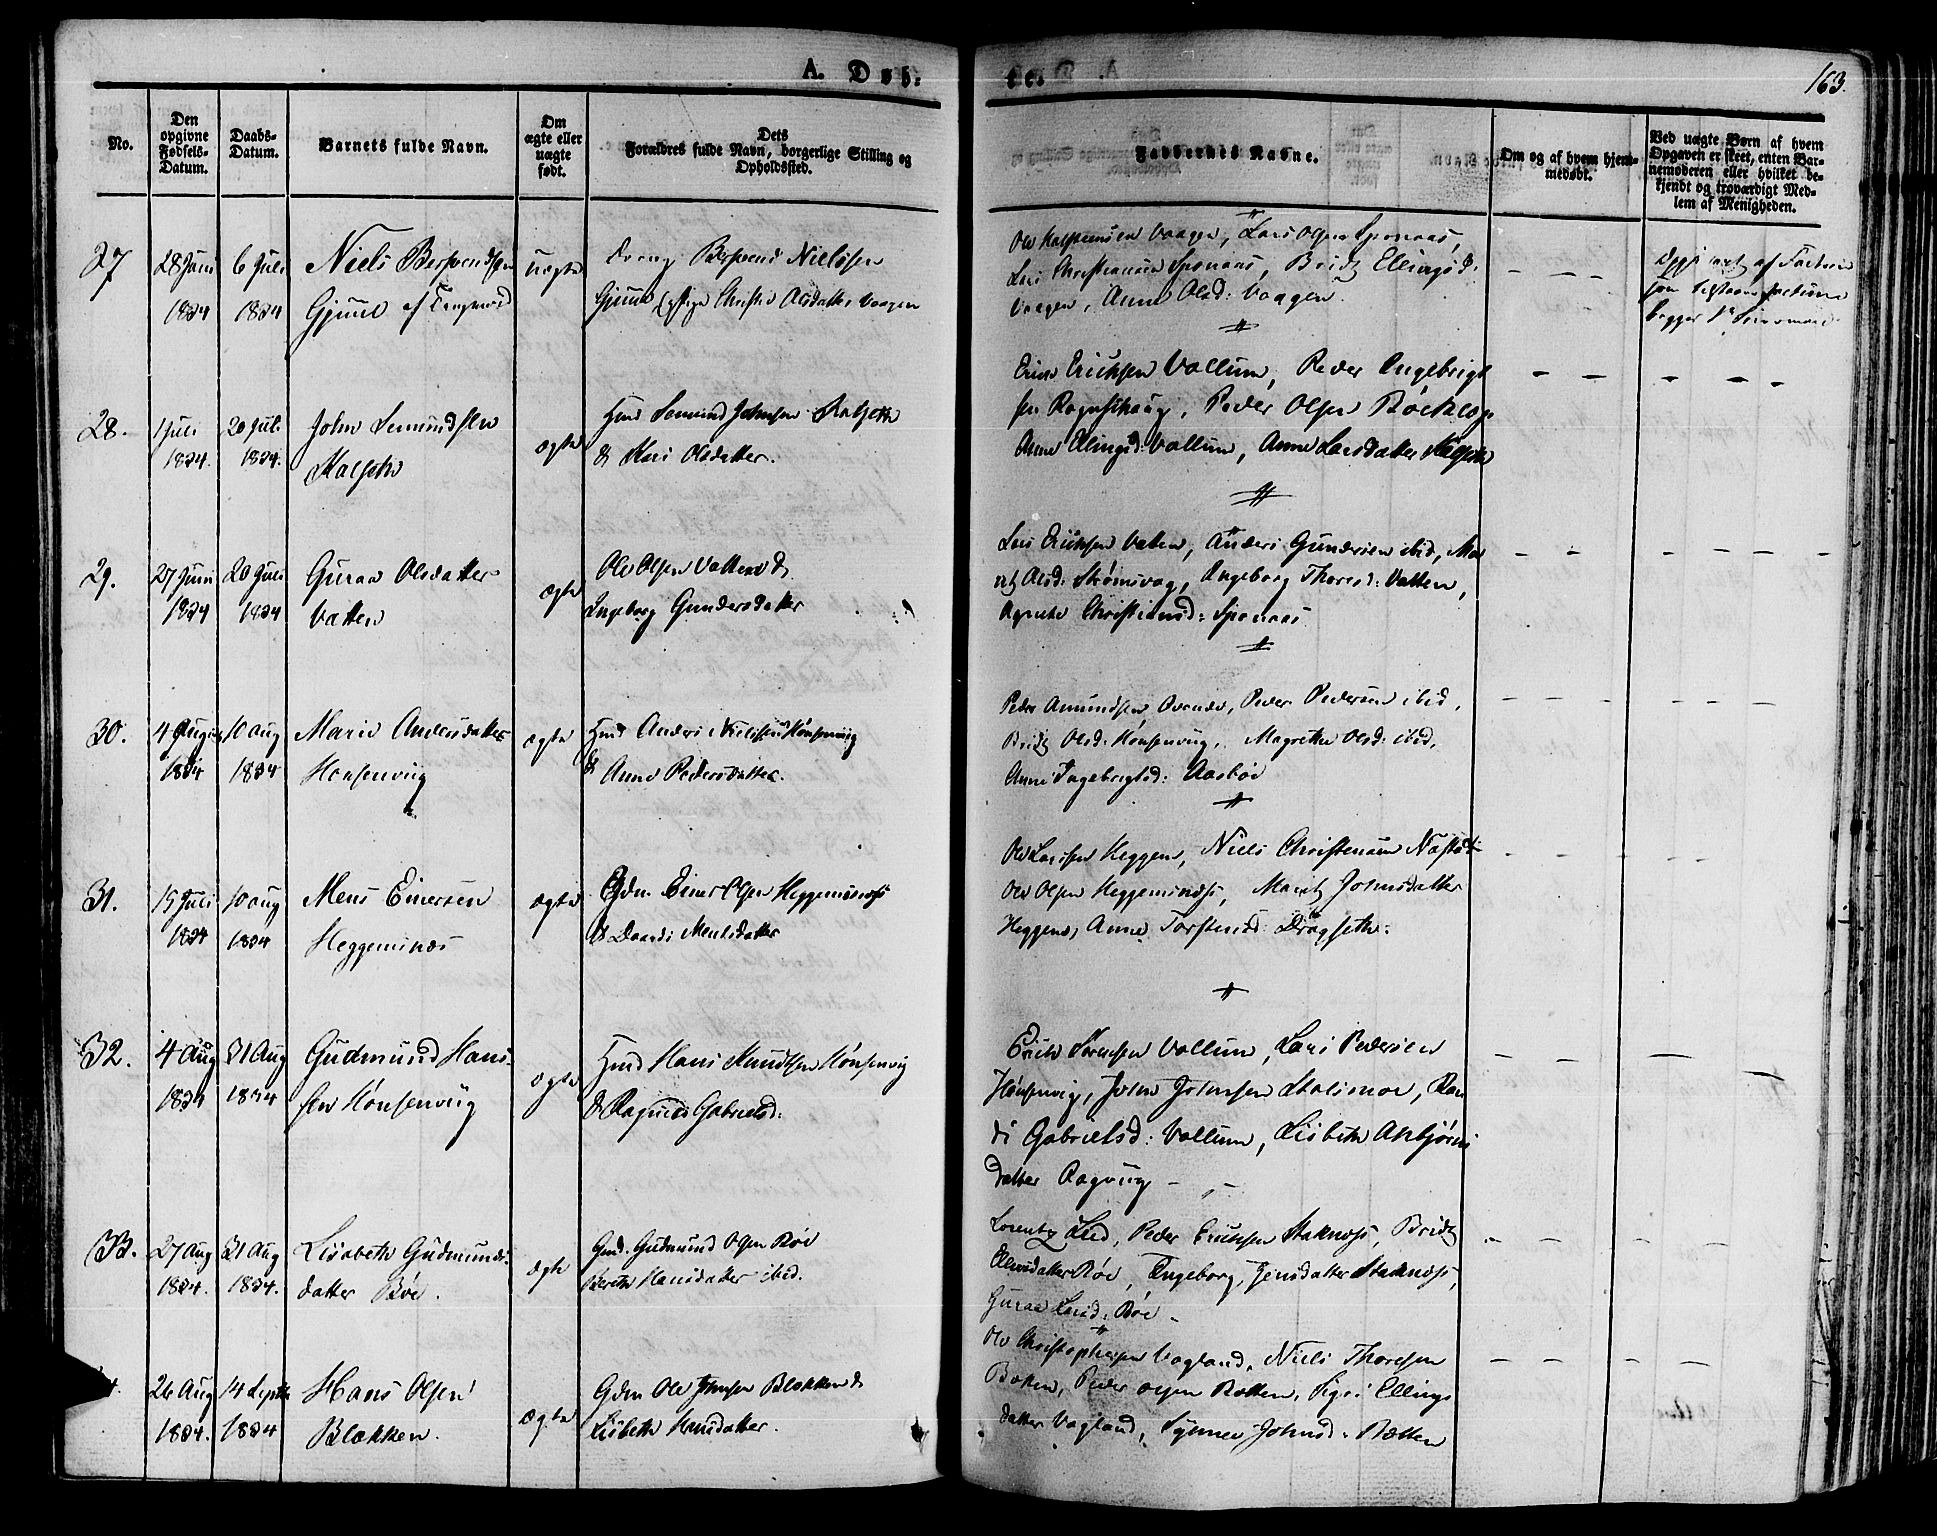 A. Døb- te.
163.
No.
Den opgivne Fødsels-Datum.
Daabs-Datum.
Barnets fulde Navn.
Om ægte eller uægte født.
Dets Forældres fulde Navn, borgerlige Stilling og Opholdssted.
Faddernes Navne.
Om og af hvem hjemmedøbt.
Ved uægte Børn af hvem Opgaven er skeet, enten Barnemoderen eller hvilket bekjendt og troværdigt Medlem af Menigheden.
27
28 Juni 1834
6 Juli 1834
Niels
Gjiul af
uægte
Nielsen
Christi Olsdatter Vaagen
Vaagen, Lars Olsen Sponaas,
Lars Christiansen Sponaas, Bridt Ellingsd:
Vaagen, Anne Olsd: Vaagen.
28.
1 Juli 1834.
20 Juli 1834.
John Semundsen
Kalseth
ægte
Hmd Semund Johnsen Kalseth
& Kari Olsdatter.
Erik Ericksen Vollum, Peder Ingebrigt
sen, Peder Olsen
Anne Ellingsd: Vollum, Anne Larsdatter Kalseth
29.
27 Juni 1834
20 Juli 1834
Guraa Olsdatter
Vatten
ægte
Ole Olsen Vatten &
Ingeborg Gundersdatter
Lars Ericksen Vatten, Anders Gundersen ibid, Ma
rit Olsd: Strømsvag, Ingeborg Thoresd: Vatten,
Agnethe Christiansd: Sponaas
30.
4 Aug 1834
10 Aug 1834
Marie Andersdatter
Honsenviig
ægte
Hmd Anders Nielsen Hónsenviig
& Anne Pedersdatter.
Peder Amundsen, Peder Pedersen ibid,
Bridt Olsd: Hónsenviig, Magrethe Olsd: ibid,
Anne Ingebrigtsd: Aasbøe
31.
15 Juli 1834
10 Aug 1834
Mens Einersen
Heggemsnæs
ægte
Gdm. Einer Olsen Heggemsnæs
& Mensdatter
Ole Larsen Heggem, Niels Christensen
Ole Olsen Heggemsnæs, Marit Johnsdatter
Heggem, Anne Torstensd: Dragseth.
32.
4 Aug 1834
31 Aug 1834
Gudmund Han-
sen Hónsenviig
ægte
Hmd Hans Knudsen Hónsenvig
& Ragnild Gabrielsd:
Erick Vollum, Lars Pedersen
Hónsenvig, John Johnsen Stolsmoe, Ran
di Gabrielsd: Vollum, Lisbeth Anbjørns
datter Rogviig
33.
27 Aug 1834.
31 Aug 1834.
Lisabeth Gudmunds-
datter Bóe.
ægte
Gmd. Gudmund Olsen Bóe
Berith Hansdatter ibid.
Lorentz Lied, Peder Ericksen Staknæs, Bridt
Bóe, Ingeborg Jensdatter Staknæs,
Guraa Larsd: Bóe
26 Aug 1834.
14 Septbr 1834
Hans Olsen
Blakken.
ægte
Gdm Ole Johnsen Blakken &
Lisbeth Hansdatter.
Ole Christophersen Vagland, Niels Thoresen
Botten, Peder Olsen Botten, Sigri Ellings
datter Vagland, Synnev Johnsd: Botten